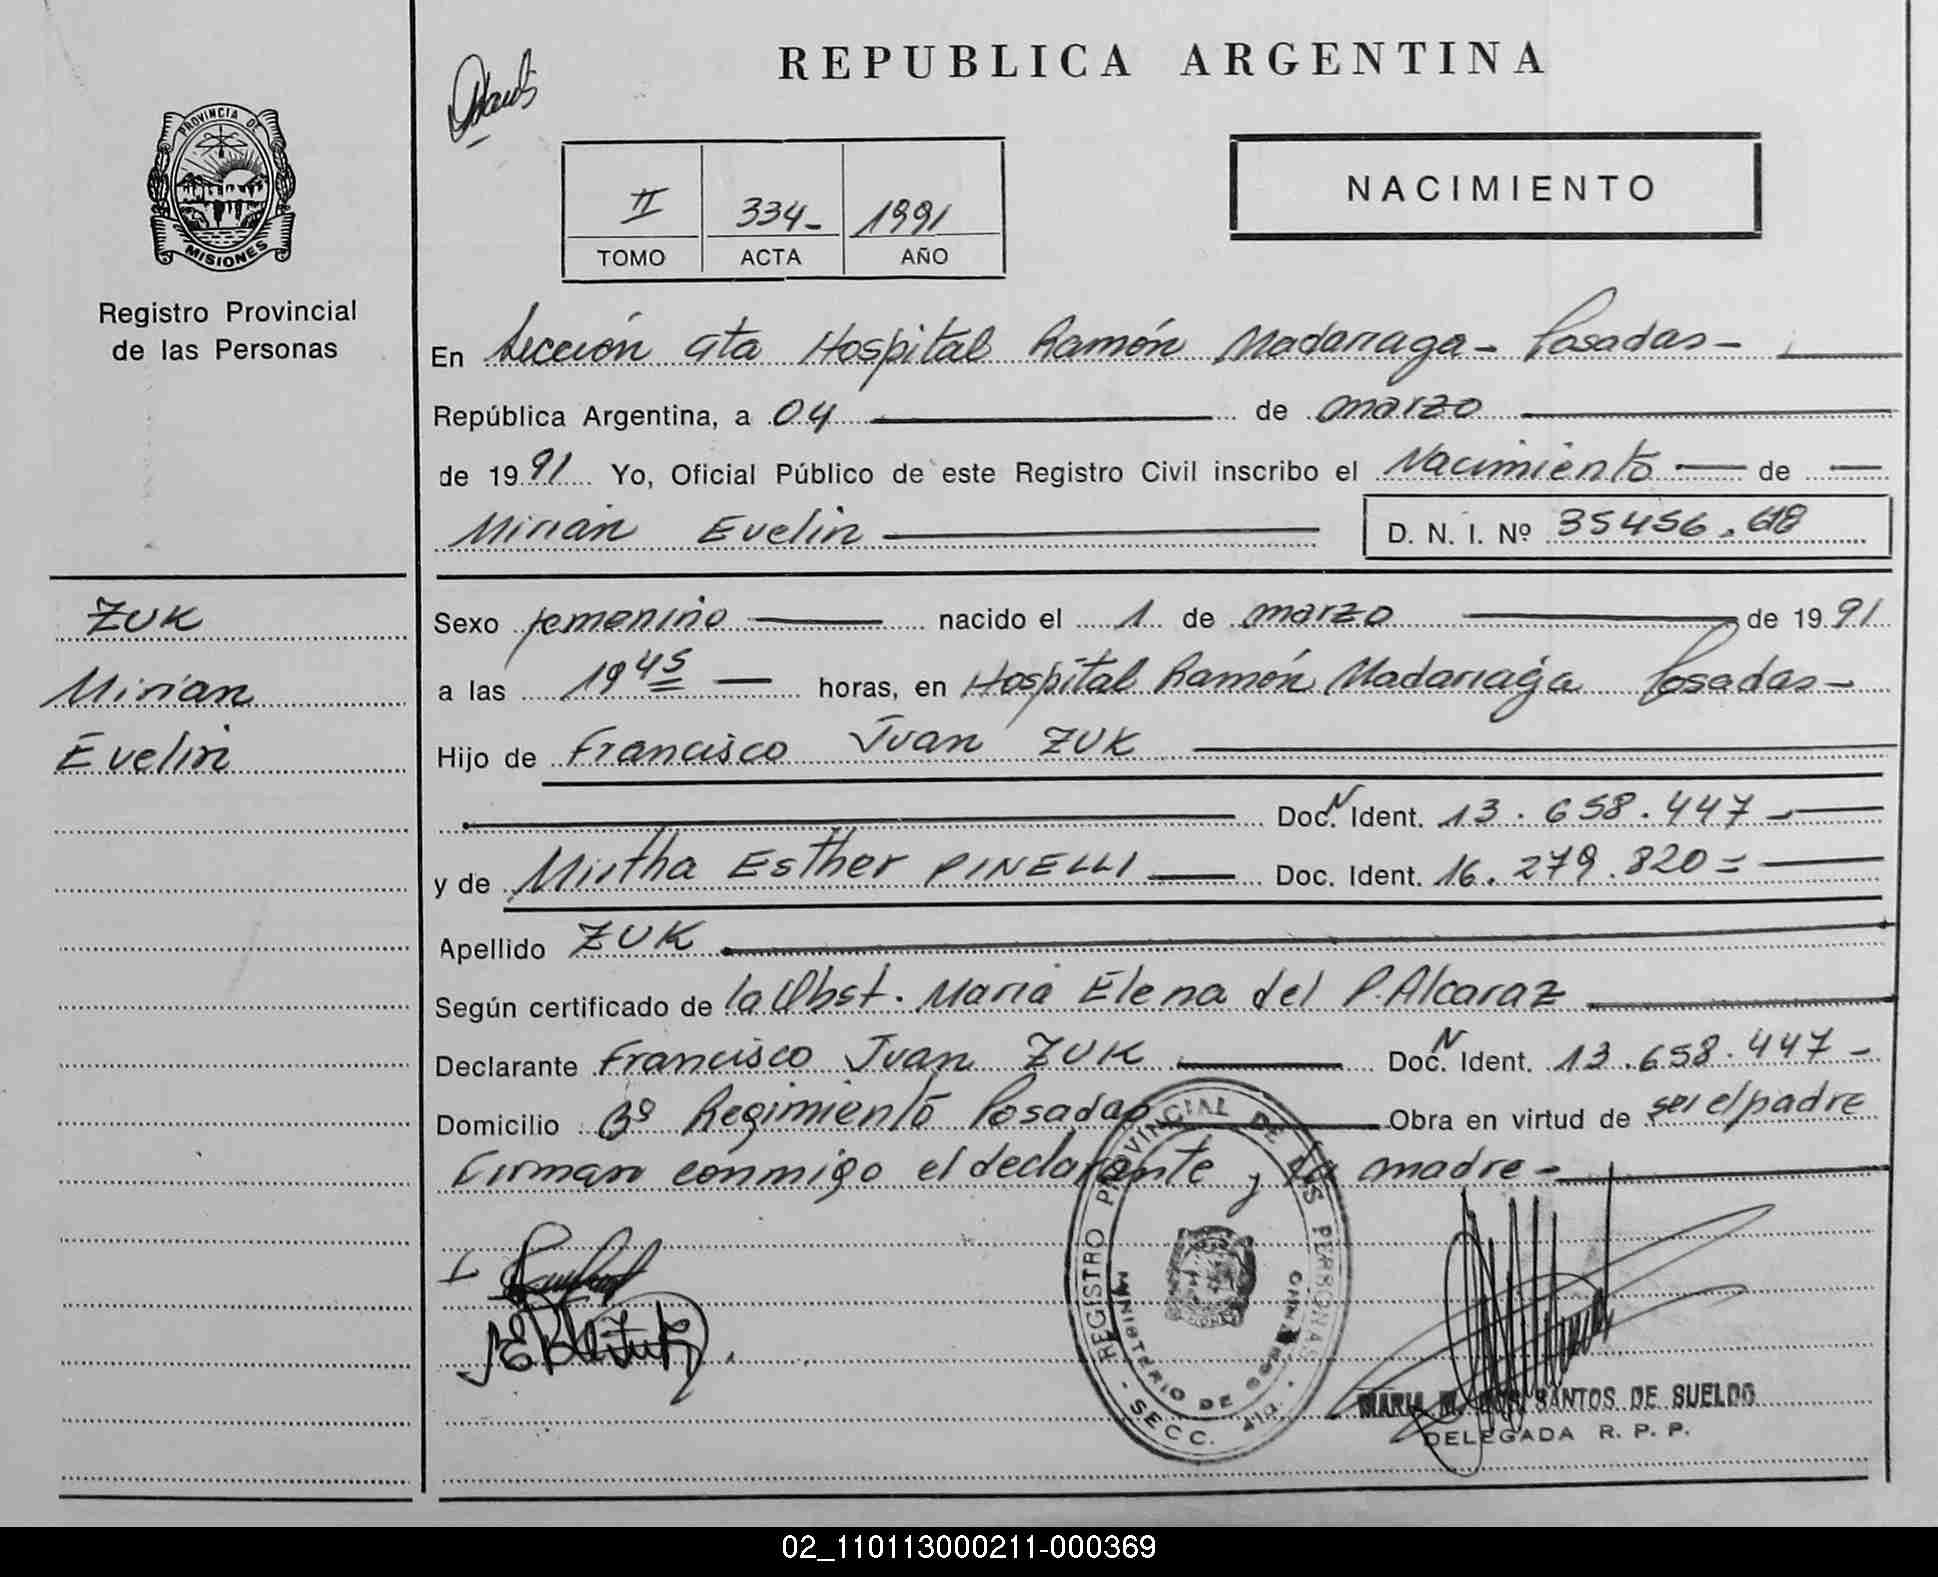 REPUBLICA ARGENTINA
PROVINCIA DE
MISIONES
Registro Provincial
de las Personas
II 334- 1991
TOMO ACTA AÑO
NACIMIENTO
En Sección 4ta Hospital Ramón Madariaga - Posadas -
República Argentina, a 04 de marzo
de 1991 Yo, Oficial Público de este Registro Civil inscribo el Nacimiento de
Mirian Evelin D. N. I. Nº 35456.618
ZUK
Mirian
Evelin
Sexo femenino nacido el 1 de marzo de 1991
a las 19 45 horas, en Hospital Ramón Madariaga Posadas -
Hijo de Francisco Juan ZUK
Doc. N Ident. 13.658.447 -
y de Mirtha Esther PINELLI Doc. Ident. 16.279.820 =
Apellido ZUK
Según certificado de la Obst. Maria Elena del P. Alcaraz
Declarante Francisco Juan ZUK Doc. N Ident. 13.658.447 -
Domicilio Bº Regimiento Posadas Obra en virtud de ser el padre
Firman conmigo el declarante y la madre -
REGISTRO PROVINCIAL DE LAS PERSONAS
MINISTERIO DE GOBIERNO
- SECC. 4ta -
MARIA M. DOS SANTOS DE SUELDO
DELEGADA R. P. P.
02_110113000211-000369